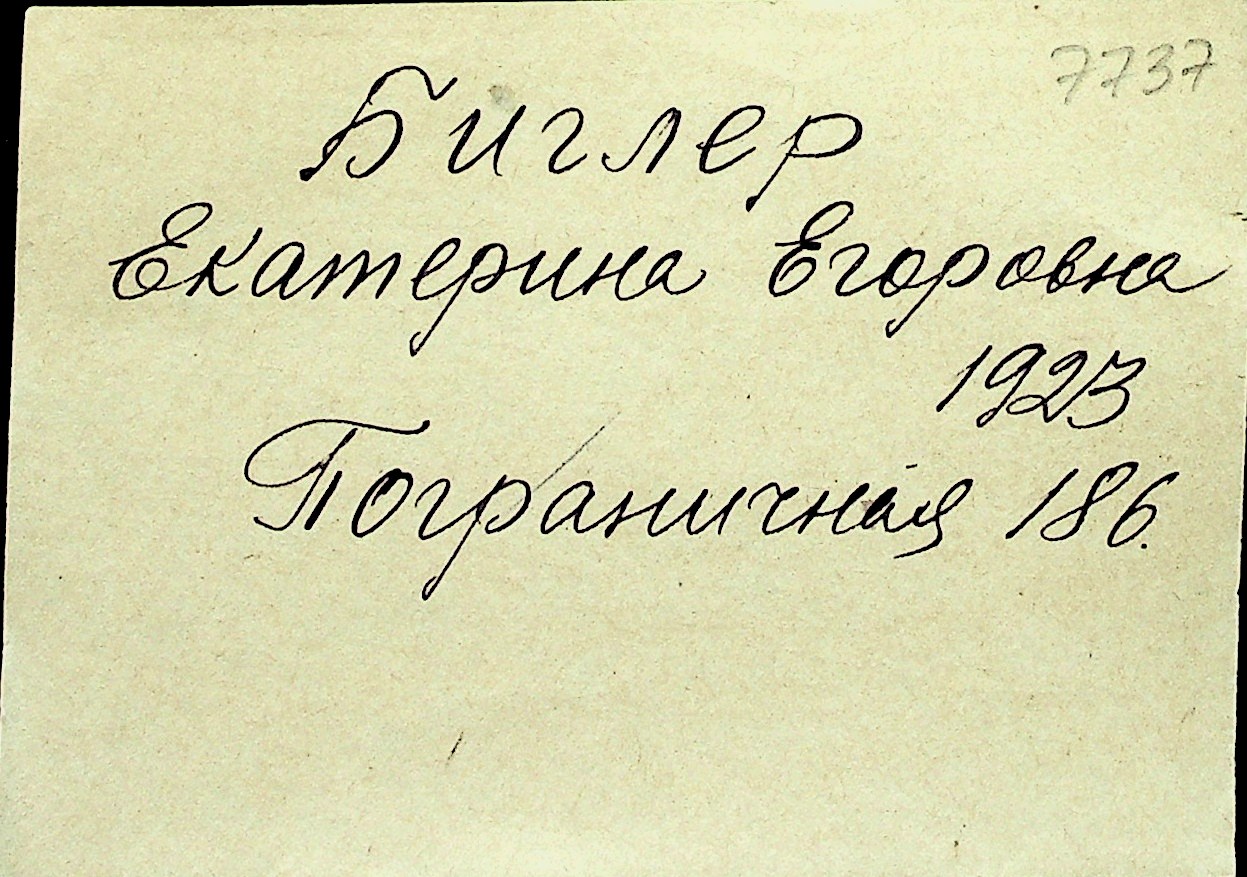 7737
Биглер
Екатерина Егоровна
1923
Пограничная 186.